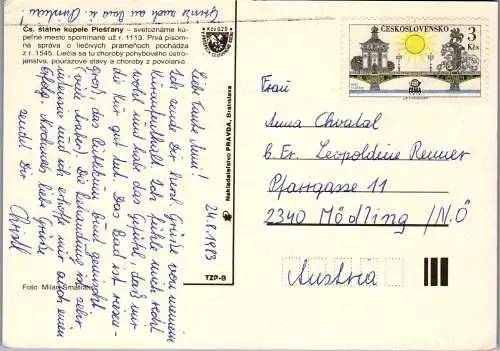 Grüße auch an Uwe u. Christian!
Čs. štátne kúpele Piešťany – svetoznáme kú-
peľné mesto spomínané už r. 1113. Prvá písom-
ná správa o liečivých prameňoch pochádza
z r. 1545. Liečia sa tu choroby pohybového ústro-
jenstva, poúrazové stavy a choroby z povolania
Kčs 0,20
24.8.1983
Liebe Tante Anni!
Ich sende Dir herzl. Grüße von meinem
Kuraufenthalt. Ich fühle mich recht
wohl und habe das Gefühl, daß mir
die Kur gut tut. Das Bad ist riesen-
groß, das Publikum bunt gemischt
(viele Araber). Die Behandlung ist sehr
intensiv und ich erhoffe mir auch einen
Erfolg. Nochmals liebe Grüße
sendet Dir
Christl
Foto: Milan
Nakladateľstvo PRAVDA, Bratislava
TZP-B
ČESKOSLOVENSKO
3
Kčs
PRAGA
1978
Frau
Anna Chvatal
b. Fr. Leopoldine Renner
Pfarrgasse 11
2340 Mödling /N.Ö
Austria